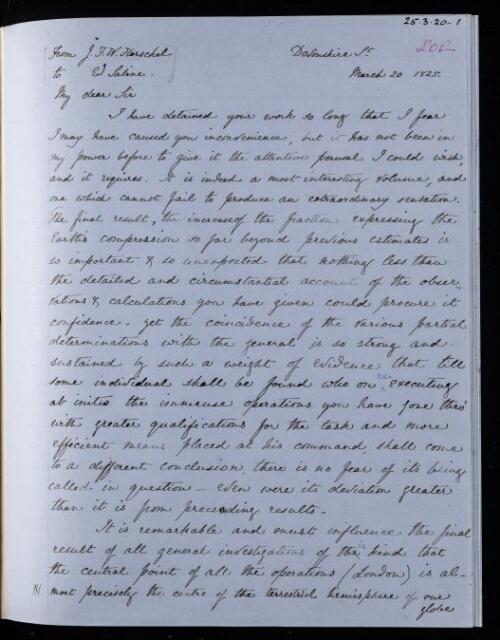 25.3.20-1
From J. F. W. Herschel
to Ed Sabine.
Devonshire St.
March 20 1825.
My dear Sir
I have detained your work so long that I fear
I may have caused you inconvenience, but it has not been in
my power before to give it the attentive perusal I could wish,
and it requires. It is indeed a most interesting volume, and
one which cannot fail to produce an extraordinary sensation.
The final result, the increase of the fraction expressing the
Earth's compression so far beyond previous estimates is
so important & so unexpected that nothing less than
the detailed and circumstantial account of the obser-
vations & calculations you have given could procure it
confidence. Yet the coincidence of the various partial
determinations with the general is so strong and
sustained by such a weight of evidence that till
some individual shall be found who on re executing
ab initio the immense operations you have gone thro'
with greater qualifications for the task and more
efficient means placed at his command, shall come
to a different conclusion, there is no fear of its being
called in question - even were its deviation greater
than it is from preceding results.
It is remarkable and must influence the final
result of all general investigations of the kind that
the central point of all the operations (London) is al-
most precisely the centre of the terrestrial hemisphere of our
globe